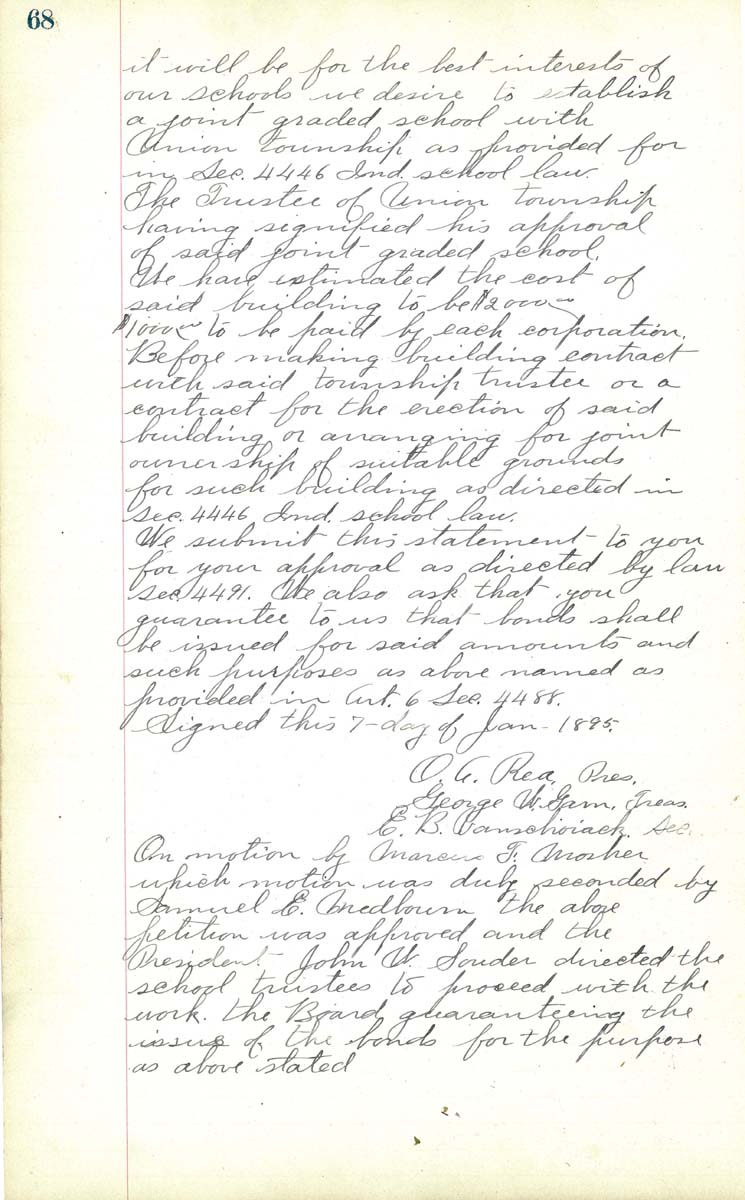 68
it will be for the best interests of
our schools we desire to establish
a joint graded school with
Union township as provided for
in Sec. 4446 Ind. school law.
The Trustee of Union township
having signified his approval
of said joint graded school.
We have estimated the cost of
said building to be $2000 00
$1000 00 to be paid by each corporation.
Before making building contract
with said township trustee or a
contract for the erection of said
building or arranging for joint
ownership of suitable grounds
for such building as directed in
Sec. 4446 Ind. school law.
We submit this statement to you
for your approval as directed by law
Sec. 4491. We also ask that you
guarantee to us that bonds shall
be issued for said amounts and
such purposes as above named as
provided in Art. 6 Sec. 4488.
Signed this 7-day of Jan- 1895.
O. A. Rea, Pres.
George W. Garn, Treas.
E. B. Vanschoiack. Sec.
On motion by Marcus F. Mosher
which motion was duly seconded by
Samuel E. Medbourn the above
petition was approved and the
President John W. Souder directed the
school trustees to proceed with the
work. the Board guaranteeing the
issue of the bonds for the purpose
as above stated